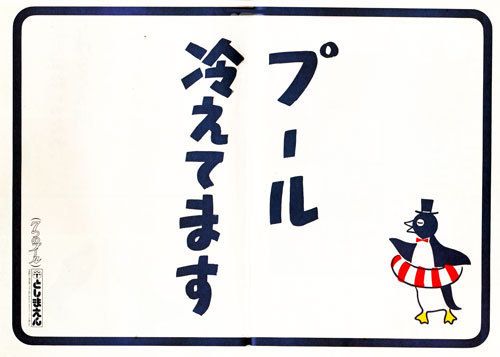 プール
冷えてます
(7つのプール)
としまえん